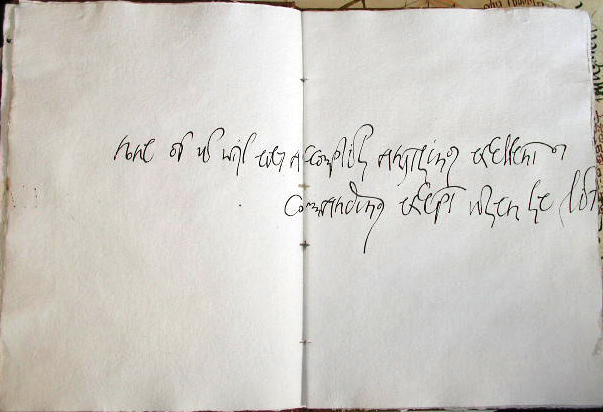 none of us will ever accomplish anything excellent or
commanding except when he